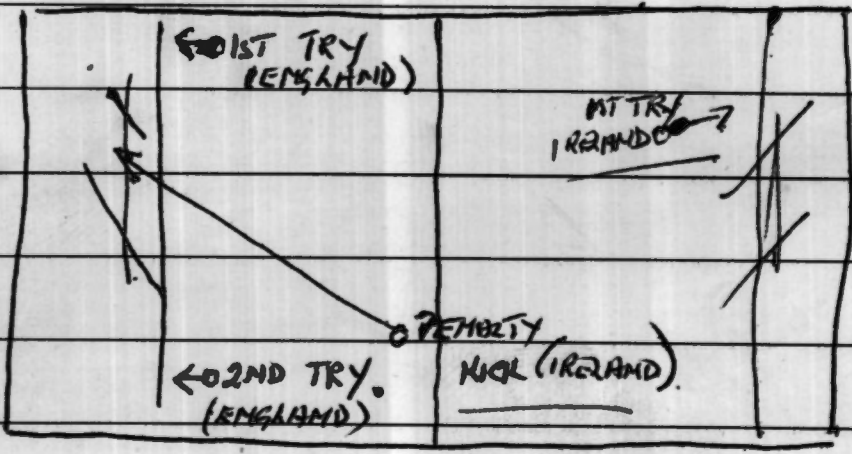 1ST TRY
(ENGLAND)
1ST TRY
IRELAND
PENALTY
KICK (IRELAND).
2ND TRY.
(ENGLAND)